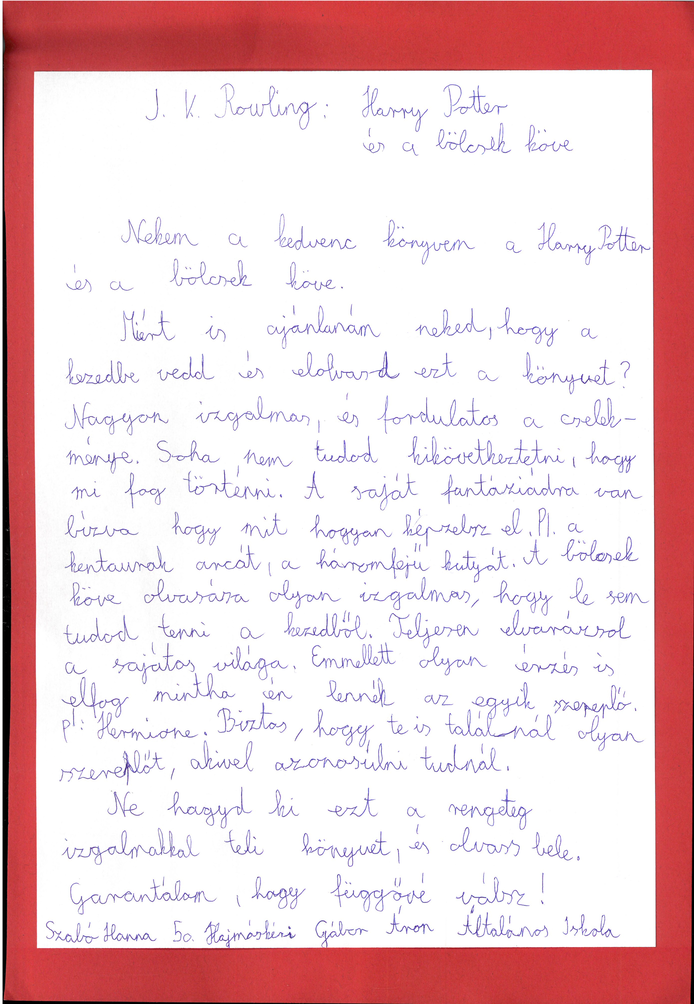 J. K. Rowling: Harry Potter
és a bölcsek köve
Nekem a kedvenc könyvem a Harry Potter
és a bölcsek köve.
Miért is ajánlanám neked, hogy a
kezedbe vedd és elolvasd ezt a könyvet?
Nagyon izgalmas, és fordulatos a cselek-
ménye. Soha nem tudod kikövetkeztetni, hogy
mi fog történni. A saját fantáziádra van
bízva hogy mit hogyan képzelsz el. Pl. a
kentaurak arcát, a háromfejű kutyát. A bölcsek
köve olvasása olyan izgalmas, hogy le sem
tudod tenni a kezedből. Teljesen elvarázsol
a sajátos világa. Emmellett olyan érzés is
elfog mintha én lennék az egyik szereplő.
pl: Hermione. Biztos, hogy te is találnál olyan
szereplőt, akivel azonosúlni tudnál.
Ne hagyd ki ezt a rengeteg
izgalmakkal teli könyvet, és olvass bele.
Garantálom, hogy függővé válsz!
Szabó Hanna 5a. Hajmáskéri Gábor Áron Általános Iskola